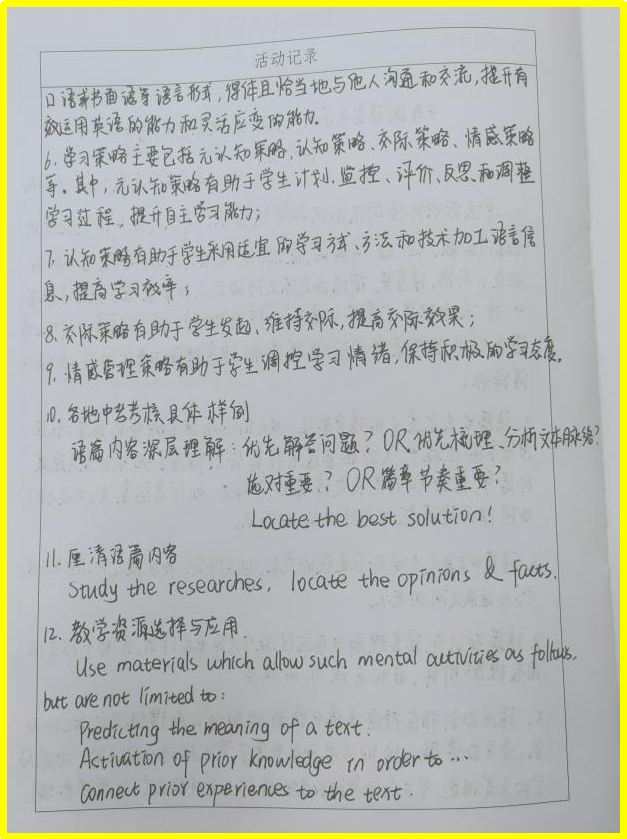 活动记录
口语或书面语等语言形式，得体且恰当地与他人沟通和交流，提升有
效运用英语的能力和灵活应变的能力。
6. 学习策略主要包括元认知策略、认知策略、交际策略、情感策略
等。其中，元认知策略有助于学生计划、监控、评价、反思和调整
学习过程，提升自主学习能力；
7. 认知策略有助于学生采用适宜的学习方式、方法和技术加工语言信
息，提高学习效率；
8. 交际策略有助于学生发起、维持交际，提高交际效果；
9. 情感管理策略有助于学生调控学习情绪，保持积极的学习态度。
10. 各地中考考核具体样例
语篇内容深层理解：优先解答问题？OR 优先梳理、分析文本脉络？
对重要？OR 篇章节奏重要？
Locate the best solution!
11. 厘清语篇内容
Study the researches, locate the opinions & facts.
12. 教学资源选择与应用.
Use materials which allow such mental activities as follows,
but are not limited to:
Predicting the meaning of a text.
Activation of prior knowledge in order to ...
Connect prior experiences to the text.